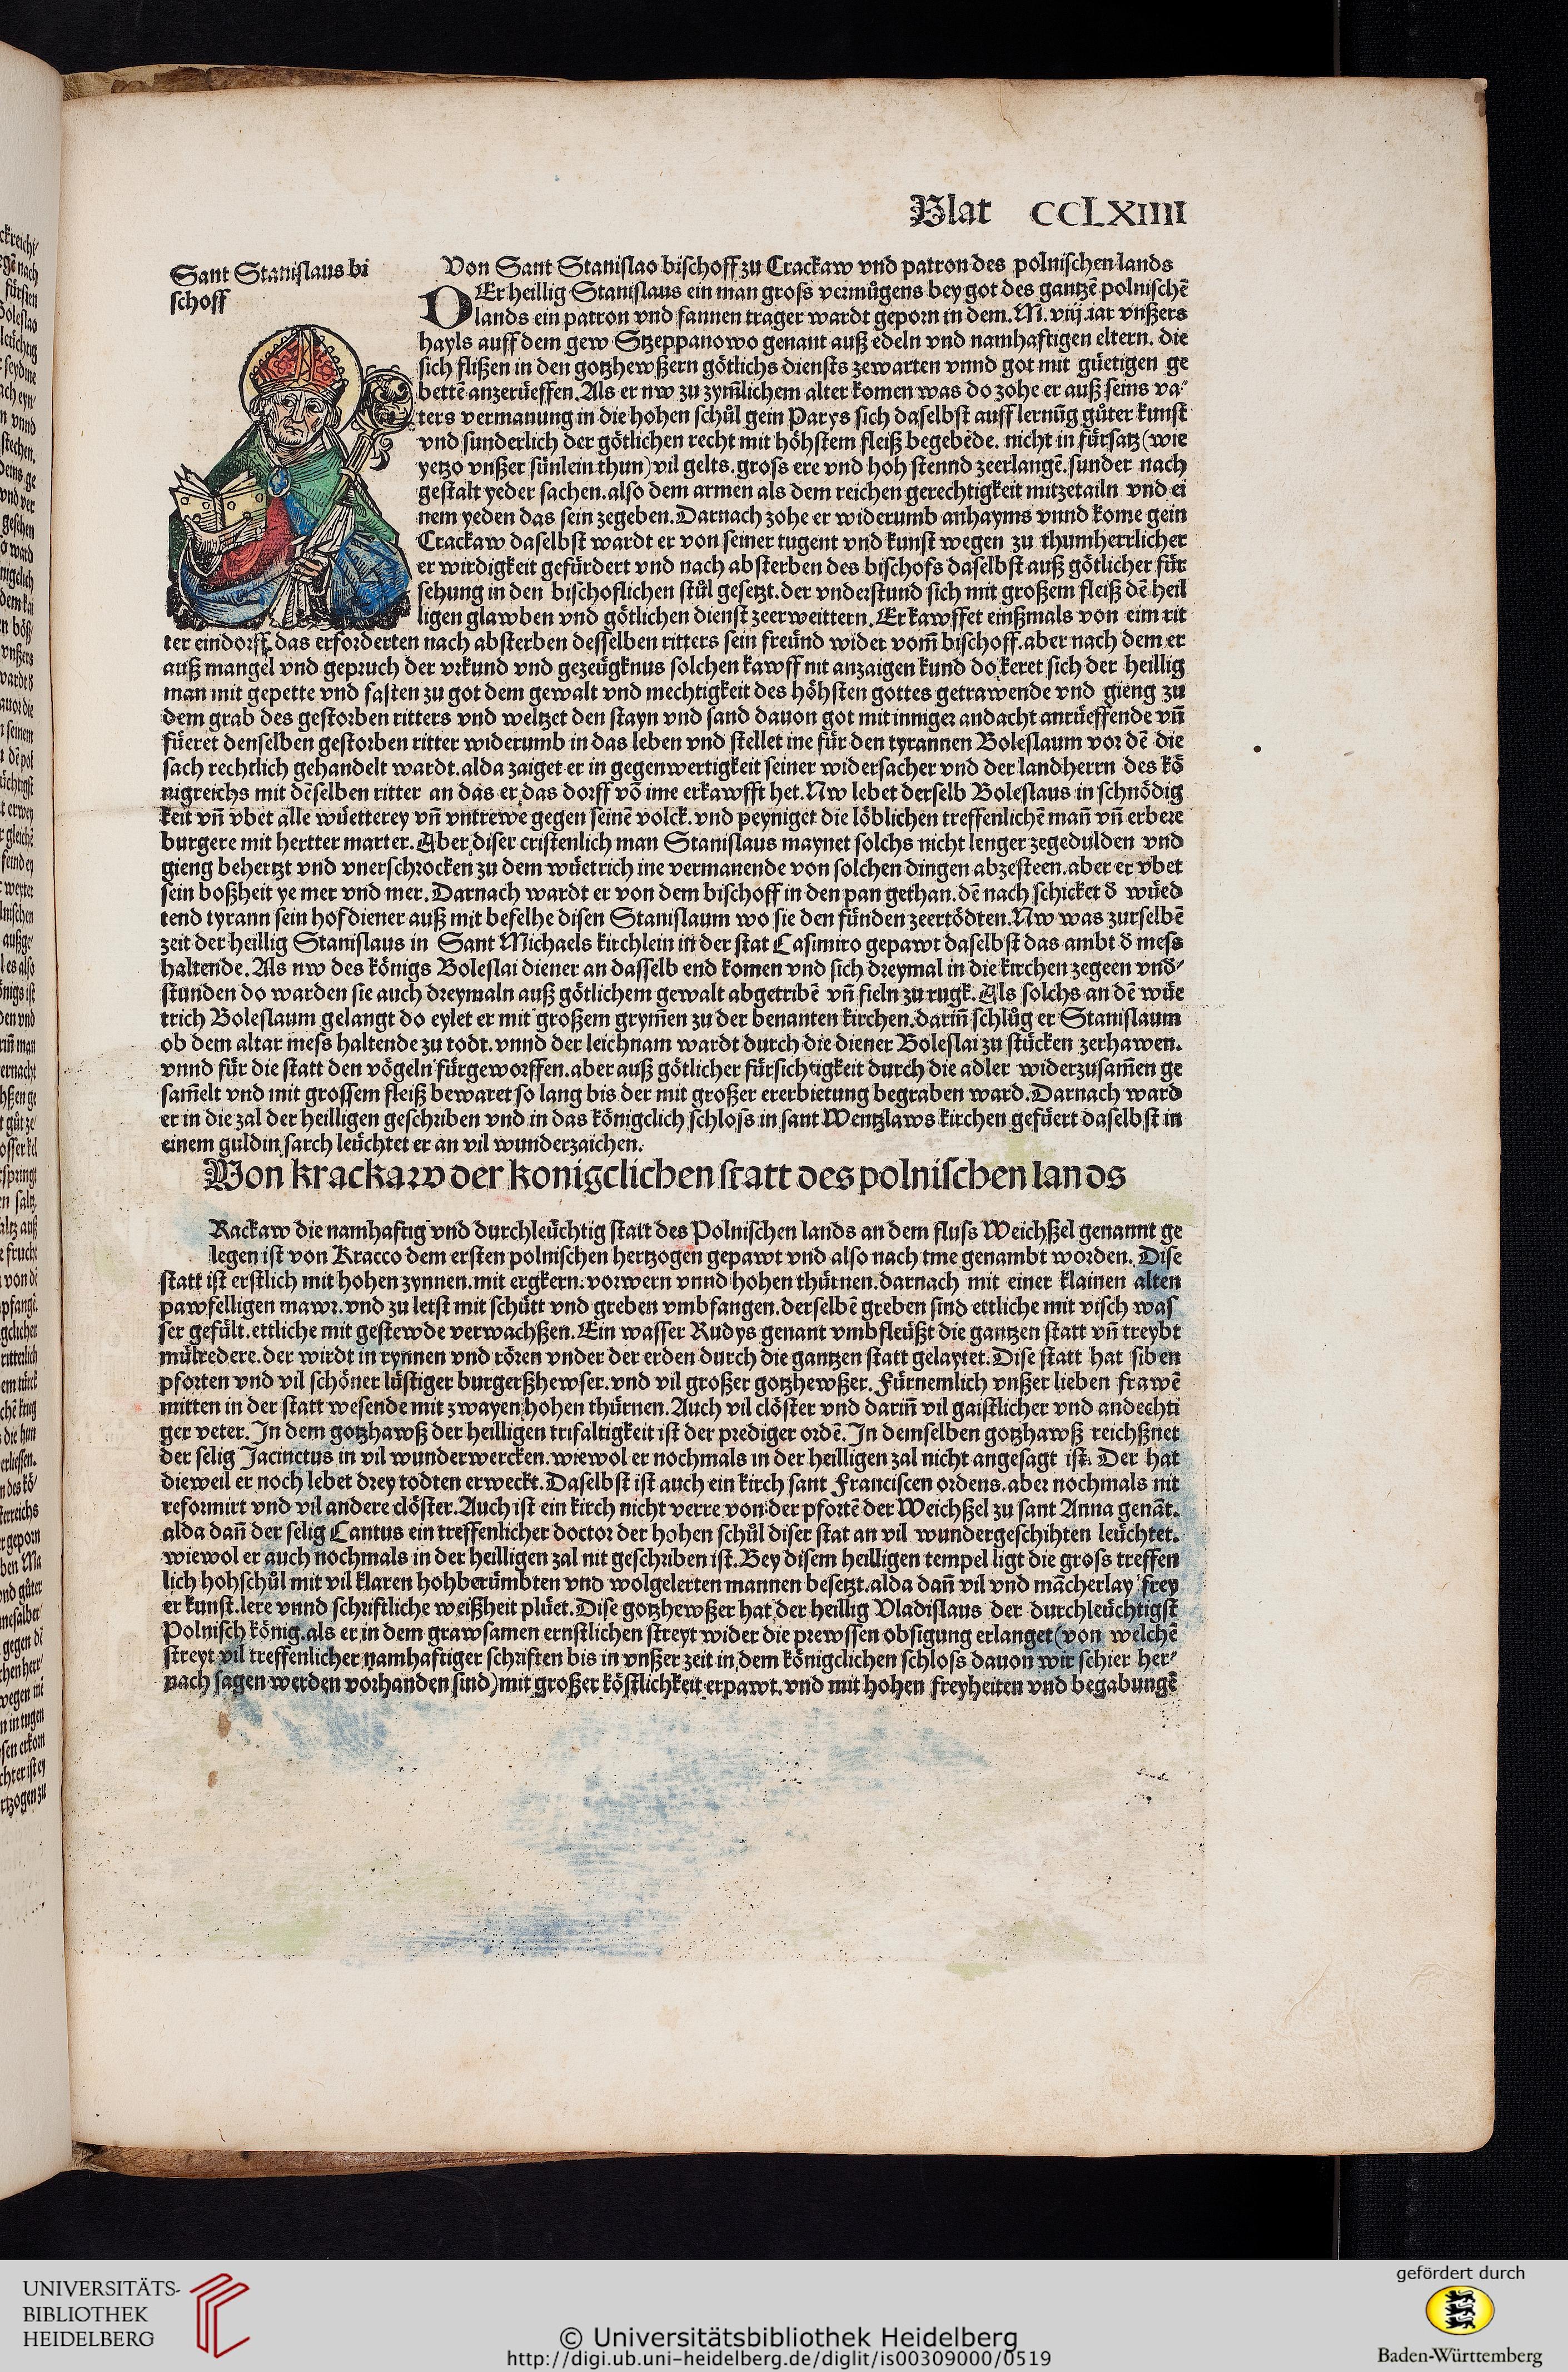 Blat CCLXIIII
Sant Stanislaus bi
schoff
Von Sant Stanislao bischoff zu Crackaw vnd patron des polnischen lands
DEr heillig Stanislaus ein man gross vermůgens bey got des gantzē polnischē
lands ein patron vnd fannen trager wardt geporn in dem. M. viij. iar vnßers
hayls auff dem gew Stzeppanowo genant auß edeln vnd namhaftigen eltern. die
sich flißen in den gotzhewßern götlichs diensts zewarten vnnd got mit güetigen ge
bettē anzerüeffen. Als er nw zu zym̄lichem alter komen was do zohe er auß seins va⸗
ters vermanung in die hohen schůl gein Parys sich daselbst auff lernūg gůter kunst
vnd sunderlich der götlichen recht mit höhstem fleiß begebēde. nicht in fürsatz (wie
yetzo vnßer sünlein thun) vil gelts. gross ere vnd hoh stennd zeerlangē. sunder nach
gestalt yeder sachen. also dem armen als dem reichen gerechtigkeit mitzetailn vnd ei
nem yeden das sein zegeben. Darnach zohe er widerumb anhayms vnnd kome gein
Crackaw daselbst wardt er von seiner tugent vnd kunst wegen zu thumherrlicher
er wirdigkeit gefürdert vnd nach absterben des bischofs daselbst auß götlicher für
sehung in den bischoflichen stůl gesetzt. der vnderstund sich mit großem fleiß dē heil
ligen glawben vnd götlichen dienst zeerweittern. Er kawffet einßmals von eim rit
ter ein dorff. das erforderten nach absterben desselben ritters sein freünd wider vom̄ bischoff. aber nach dem er
auß mangel vnd gepruch der vrkund vnd gezeügknus solchen kawff nit anzaigen kund do keret sich der heillig
man mit gepette vnd fasten zu got dem gewalt vnd mechtigkeit des höhsten gottes getrawende vnd gieng zu
dem grab des gestorben ritters vnd weltzet den stayn vnd sand dauon got mit inniger andacht anrüeffende vn̄
füeret denselben gestorben ritter widerumb in das leben vnd stellet ine für den tyrannen Boleslaum vor dē die
sach rechtlich gehandelt wardt. alda zaiget er in gegenwertigkeit seiner widersacher vnd der landherrn des kö
nigreichs mit dēselben ritter an das er das dorff vō ime erkawfft het. Nw lebet derselb Boleslaus in schnödig
keit vn̄ vbet alle wüetterey vn̄ vntrewe gegen seinē volck. vnd peyniget die löblichen treffenlichē man̄ vn̄ erbere
burgere mit hertter marter. Aber diser cristenlich man Stanislaus maynet solchs nicht lenger zegedulden vnd
gieng behertzt vnd vnerschrocken zu dem wüetrich ine vermanende von solchen dingen abzesteen. aber er vbet
sein boßheit ye mer vnd mer. Darnach wardt er von dem bischoff in den pan gethan. dē nach schicket d̕ wüed
tend tyrann sein hofdiener auß mit befelhe disen Stanislaum wo sie den fünden zeertödten. Nw was zurselbē
zeit der heillig Stanislaus in Sant Michaels kirchlein in der stat Casimiro gepawt daselbst das ambt d̕ mess
haltende. Als nw des königs Boleslai diener an dasselb end komen vnd sich dreymal in die kirchen zegeen vnd⸗
stunden do warden sie auch dreymaln auß götlichem gewalt abgetribē vn̄ fieln zu rugk. Als solchs an dē wüe
trich Boleslaum gelangt do eylet er mit großem grym̄en zu der benanten kirchen. darin̄ schlůg er Stanislaum
ob dem altar mess haltende zu todt. vnnd der leichnam wardt durch die diener Boleslai zu stücken zerhawen.
vnnd für die statt den vögeln fürgeworffen. aber auß götlicher fürsichtigkeit durch die adler widerzusam̄en ge
sam̄elt vnd mit grossem fleiß bewaret so lang bis der mit großer ererbietung begraben ward. Darnach ward
er in die zal der heilligen geschriben vnd in das königclich schloss in sant Wentzlaws kirchen gefüert daselbst in
einem guldin sarch leüchtet er an vil wunderzaichen.
Von krackaw der konigclichen statt des polnischen lands
Rackaw die namhaftig vnd durchleüchtig statt des Polnischen lands an dem fluss Weichßel genannt ge
legen ist von Kracco dem ersten polnischen hertzogen gepawt vnd also nach ime genambt worden. Dise
statt ist erstlich mit hohen zynnen. mit ergkern. vorwern vnnd hohen thürnen. darnach mit einer klainen alten
pawfelligen mawr. vnd zu letst mit schütt vnd greben vmbfangen. derselbē greben sind ettliche mit visch was
ser gefült. ettliche mit gestewde verwachßen. Ein wasser Rudys genant vmbfleüßt die gantzen statt vn̄ treybt
mülredere. der wirdt in rynnen vnd rören vnder der erden durch die gantzen statt gelaytet. Dise statt hat siben
pforten vnd vil schöner lüstiger burgerßhewser. vnd vil großer gotzhewßer. Fürnemlich vnßer lieben frawē
mitten in der statt wesende mit zwayen hohen thürnen. Auch vil clöster vnd darin̄ vil gaistlicher vnd andechti
ger veter. In dem gotzhawß der heilligen trifaltigkeit ist der prediger ordē. In demselben gotzhawß reichßnet
der selig Jacinctus in vil wunderwercken. wiewol er nochmals in der heilligen zal nicht angesagt ist. Der hat
dieweil er noch lebet drey todten erweckt. Daselbst ist auch ein kirch sant Franciscen ordens. aber nochmals nit
reformirt vnd vil andere clöster. Auch ist ein kirch nicht verre von der pfortē der Weichßel zu sant Anna genāt.
alda dan̄ der selig Cantus ein treffenlicher doctor der hohen schůl diser stat an vil wundergeschihten leüchtet.
wiewol er auch nochmals in der heilligen zal nit geschriben ist. Bey disem heilligen tempel ligt die gross treffen
lich hohschůl mit vil klaren hohberümbten vnd wolgelerten mannen besetzt. alda dan̄ vil vnd mācherlay frey
er kunst. lere vnnd schriftliche weißheit plüet. Dise gotzhewßer hat der heillig Vladislaus der durchleüchtigst
Polnisch könig. als er in dem grawsamen ernstlichen streyt wider die prewssen obsigung erlanget (von welchē
streyt vil treffenlicher namhaftiger schriften bis in vnßer zeit in dem königclichen schloss dauon wir schier her⸗
nach sagen werden vorhanden sind) mit großer köstlichkeit erpawt. vnd mit hohen freyheiten vnd begabungē
UNIVERSITÄTS-
BIBLIOTHEK
HEIDELBERG
© Universitätsbibliothek Heidelberg
http://digi.ub.uni-heidelberg.de/diglit/is00309000/0519
gefördert durch
Baden-Württemberg